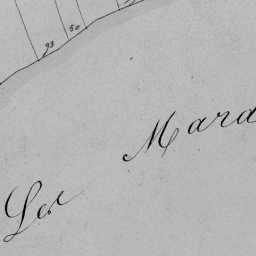 93
50
Les Mara